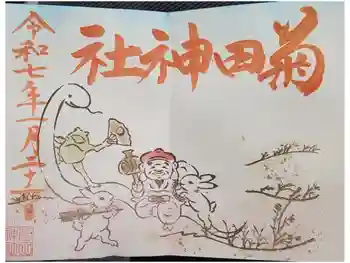 菊田神社
令和七年一月二十